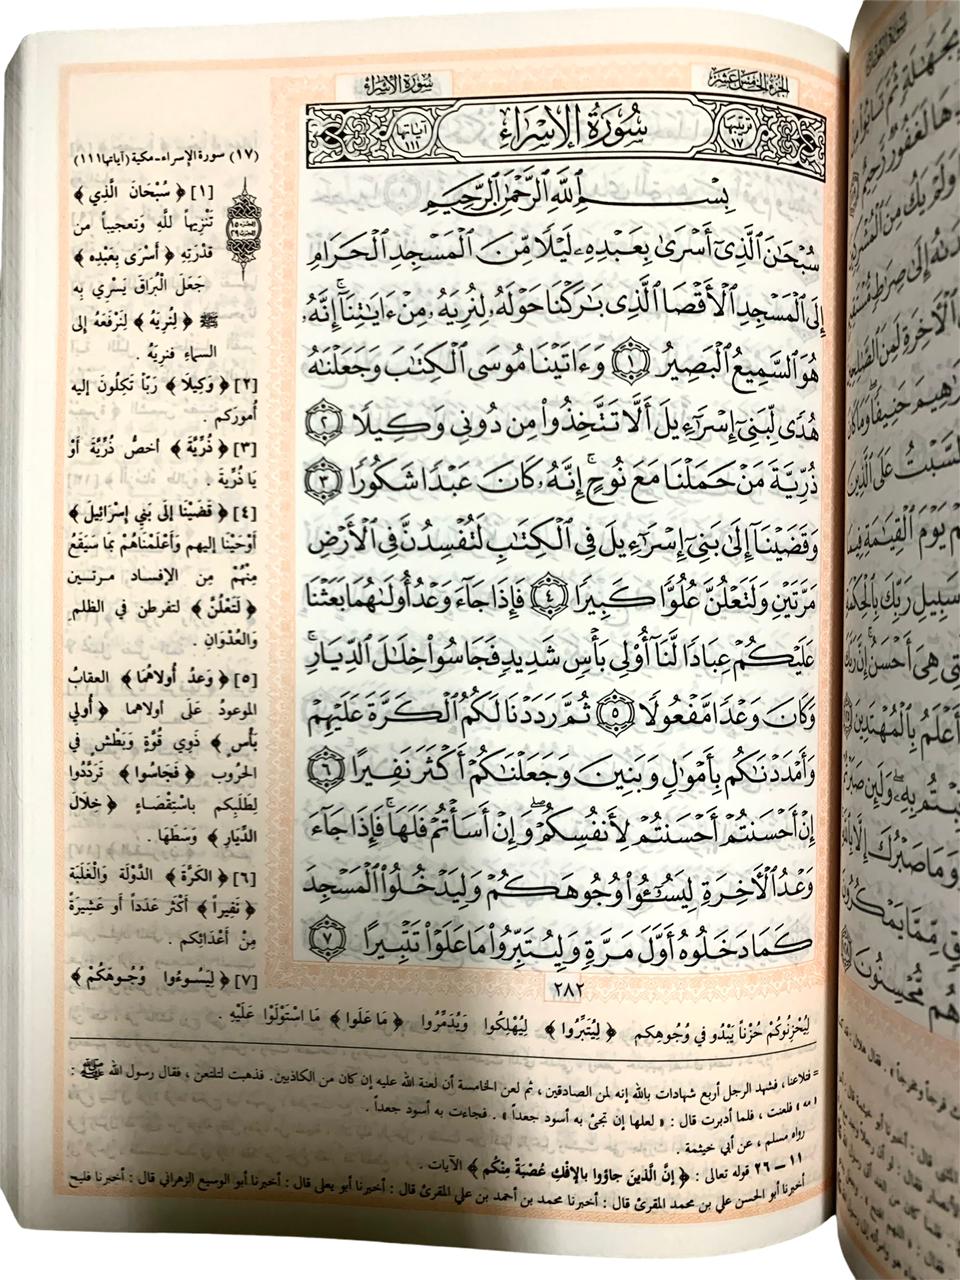 الجزء الخامس عشر
سورة الإسراء
ترتيبها ١٧
سُورَةُ الإِسْرَاءِ
آياتها ١١١
بِسْمِ اللَّهِ الرَّحْمَٰنِ الرَّحِيمِ
سُبْحَانَ الَّذِي أَسْرَىٰ بِعَبْدِهِ لَيْلًا مِّنَ الْمَسْجِدِ الْحَرَامِ
إِلَى الْمَسْجِدِ الْأَقْصَا الَّذِي بَارَكْنَا حَوْلَهُ لِنُرِيَهُ مِنْ ءَايَاتِنَا إِنَّهُ
هُوَ السَّمِيعُ الْبَصِيرُ ١ وَءَاتَيْنَا مُوسَى الْكِتَابَ وَجَعَلْنَاهُ
هُدًى لِّبَنِي إِسْرَاءِيلَ أَلَّا تَتَّخِذُوا مِن دُونِي وَكِيلًا ٢
ذُرِّيَّةَ مَنْ حَمَلْنَا مَعَ نُوحٍ إِنَّهُ كَانَ عَبْدًا شَكُورًا ٣
وَقَضَيْنَا إِلَىٰ بَنِي إِسْرَاءِيلَ فِي الْكِتَابِ لَتُفْسِدُنَّ فِي الْأَرْضِ
مَرَّتَيْنِ وَلَتَعْلُنَّ عُلُوًّا كَبِيرًا ٤ فَإِذَا جَاءَ وَعْدُ أُولَاهُمَا بَعَثْنَا
عَلَيْكُمْ عِبَادًا لَّنَا أُولِي بَأْسٍ شَدِيدٍ فَجَاسُوا خِلَالَ الدِّيَارِ
وَكَانَ وَعْدًا مَّفْعُولًا ٥ ثُمَّ رَدَدْنَا لَكُمُ الْكَرَّةَ عَلَيْهِمْ
وَأَمْدَدْنَاكُم بِأَمْوَالٍ وَبَنِينَ وَجَعَلْنَاكُمْ أَكْثَرَ نَفِيرًا ٦
إِنْ أَحْسَنتُمْ أَحْسَنتُمْ لِأَنفُسِكُمْ وَإِنْ أَسَأْتُمْ فَلَهَا فَإِذَا جَاءَ
وَعْدُ الْآخِرَةِ لِيَسُـُٔوا وُجُوهَكُمْ وَلِيَدْخُلُوا الْمَسْجِدَ
كَمَا دَخَلُوهُ أَوَّلَ مَرَّةٍ وَلِيُتَبِّرُوا مَا عَلَوْا تَتْبِيرًا ٧
٢٨٢
(١٧) سورة الإسراء - مكية (آياتها ١١١)
[١] ﴿ سُبْحَانَ الَّذِي ﴾
تَنْزِيهاً للَّهِ وتَعجيباً من
قدْرَتِهِ ﴿ أَسْرَى بِعَبْدِهِ ﴾
جَعَلَ الْبُرَاقَ يَسْرِي بِهِ
ﷺ ﴿ لِنُرِيَهُ ﴾ لِنَرْفَعَهُ إلى
السماءِ فنرِيَهُ .
[٢] ﴿ وَكِيلًا ﴾ رَبّاً تَكِلُونَ إليه
أُمورَكم .
[٣] ﴿ ذُرِّيَّةَ ﴾ أخصُّ ذُرِّيَّةَ أَوْ
يَا ذُرِّيةَ .
[٤] ﴿ قَضَيْنَا إلَى بَنِي إِسْرَائِيلَ ﴾
أَوْحَيْنَا إليهم وَأَعْلَمْنَاهُمْ بِمَا سَيَقَعُ
مِنْهُمْ مِن الإفساد مرتـين
﴿ لَتَعْلُنَّ ﴾ لتفرطن في الظلمِ
وَالعُدْوَانِ .
[٥] ﴿ وَعدُ أُولاهُمَا ﴾ العقابُ
الموعودُ عَلَى أولاهما ﴿ أُولي
بَأْسٍ ﴾ ذَوِي قُوَّةٍ وَبَطْشٍ في
الحُروبِ ﴿ فَجَاسُوا ﴾ تَرَدَّدُوا
لِطَلَبِكم باسْتِقْصَاءٍ ﴿ خِلَالَ
الدِّيَارِ ﴾ وَسَطَهَا .
[٦] ﴿ الكَرَّةَ ﴾ الدَّوْلَةَ وَالْغَلَبَةَ
﴿ نَفِيراً ﴾ أَكثَرَ عَدَداً أَو عَشِيرَةً
مِنْ أَعْدَائِكم .
[٧] ﴿ لِيَسُوءُوا وُجُوهَكُمْ ﴾
لِيُحْزِنُوكُمْ حُزْناً يَبْدُو في وُجُوهِكم ﴿ لِيُتَبِّرُوا ﴾ لِيُهْلِكُوا وَيُدَمِّرُوا ﴿ مَا عَلَوا ﴾ مَا اسْتَوْلَوْا عَلَيْهِ .
= فتلاعنا، فشهد الرجل أربع شهادات بالله إنه لمن الصادقين ، ثم لعن الخامسة أن لعنة الله عليه إن كان من الكاذبين. فذهبت لتلتعن ، فقال رسول الله ﷺ :
« مه » فلعنت ، فلما أدبرت قال : « لعلها إن تجئ به أسود جعداً » . فجاءت به أسود جعداً .
رواه مسلم ، عن أبي خيثمة .
١١ — ٢٦ قوله تعالى : ﴿ إِنَّ الَّذينَ جاؤوا بالإفْكِ عُصْبَةٌ مِنْكُم ﴾ الآيات .
أخبرنا أبو الحسن علي بن محمد المقرئ قال : أخبرنا محمد بن أحمد بن علي المقرئ قال : أخبرنا أبو يعلى قال : أخبرنا أبو الوسيع الزهراني قال : أخبرنا فليح